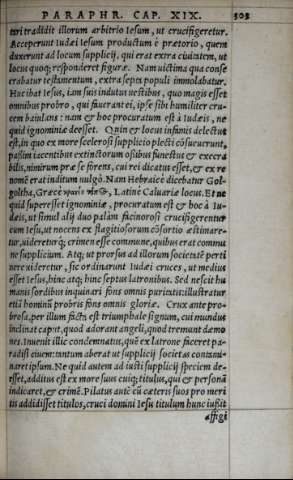 PARAPHR. CAP. XIX. 503
teri tradidit illorum arbitrio Iesum, ut crucifigeretur.
Acceperunt Iudæi Iesum productum è prætorio, quem
duxerunt ad locum supplicij, qui erat extra ciuitatem, ut
locus quoq; responderet figuræ. Nam uictima qua conse
crabatur testamentum, extra septa populi immolabatur.
Huc ibat Iesus, iam suis indutus uestibus, quo magis esset
omnibus probro, qui fuerant ei, ipse sibi humiliter cru-
cem baiulans: nam & hoc procuratum est à Iudæis, ne
quid ignominiæ deesset. Quin & locus infamis delectus
est, in quo ex more scelerosi supplicio plecti cōsueuerunt,
passim iacentibus extinctorum ossibus funestus & execra
bilis, nimirum præ se ferens, cui rei dicatus esset, & ex re
nomē erat inditum uulgò. Nam Hebraicè dicebatur Gol-
golthæ, Græcè Latinè Caluariæ locus. Et ne
quid superesset ignominiæ, procuratum est & hoc à Iu-
dæis, ut simul alij duo palàm facinorosi crucifigerentur
cum Iesu, ut nocens ex flagitiosorum cōsortio æstimare-
tur, uidereturq; crimen esse commune, quibus erat commu
ne supplicium. Atq; ut prorsus ad illorum societatē perti
nere uideretur, sic ordinarunt Iudæi cruces, ut medius
esset Iesus, hinc atq; hinc septus latronibus. Sed nescit hu
manis sordibus inquinari fons omnis puritatis: illustratur
etiā hominū probris fons omnis gloriæ. Crux ante pro-
brosa, per illum fact. est triumphale signum, cui mundus
inclinat caput, quod adorant angeli, quod tremunt dæmo
nes. Inuenit illic condemnatus, quē ex latrone faceret pa-
radisi ciuem: tantum aberat ut supplicij societas contami-
naret ipsum. Ne quid autem ad iusti supplicij speciem de-
esset, additus est ex more suus cuiq; titulus, qui & personā
indicaret, & crimē. Pilatus autē cū cæteris suos pro meri
tis addidisset titulos, cruci domini Iesu titulum hunc iussit
affigi